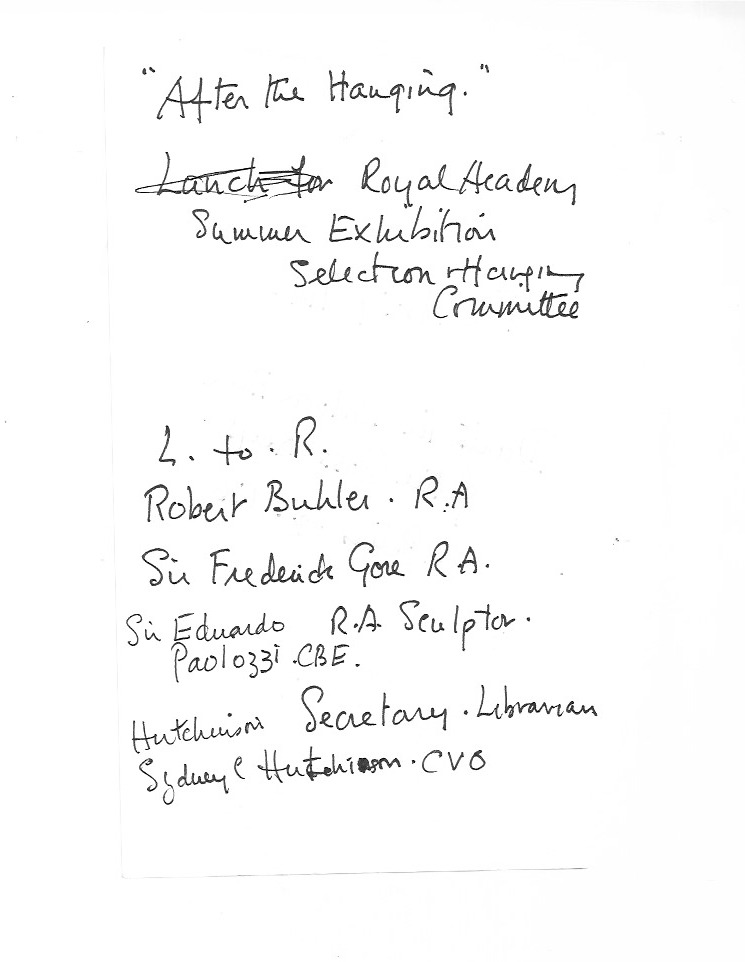 "After the Hanging."
Lunch for Royal Academy
Summer Exhibition
Selection + Hanging
Committee
L. to. R.
Robert Buhler. R.A
Sir Frederick Gore RA.
Sir Eduardo R.A. Sculptor.
Paolozzi .CBE.
Hutchinson Secretary. Librarian
Sydney C Hutchinson. CVO